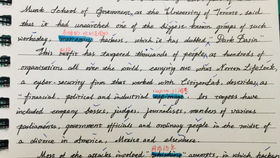 Munk School of Government, at the University of Toronto, said
that it had unearthed one of the biggest known groups of such
workaday hackers, which it has dubbed "Dark Basin".
This outfit has targeted thousands of people, at hundreds of
organisations all over the world, carrying out what NortonLifeLock,
a cyber-security firm that worked with CitizenLab, describes as
financial, political and industrial espionage. Its targets have
included company bosses, judges, journalists, members of various
parliaments, government officials and ordinary people in the midst of
a divorce in America, Mexico and elsewhere.
Most of the attacks involved attempts, in which ha